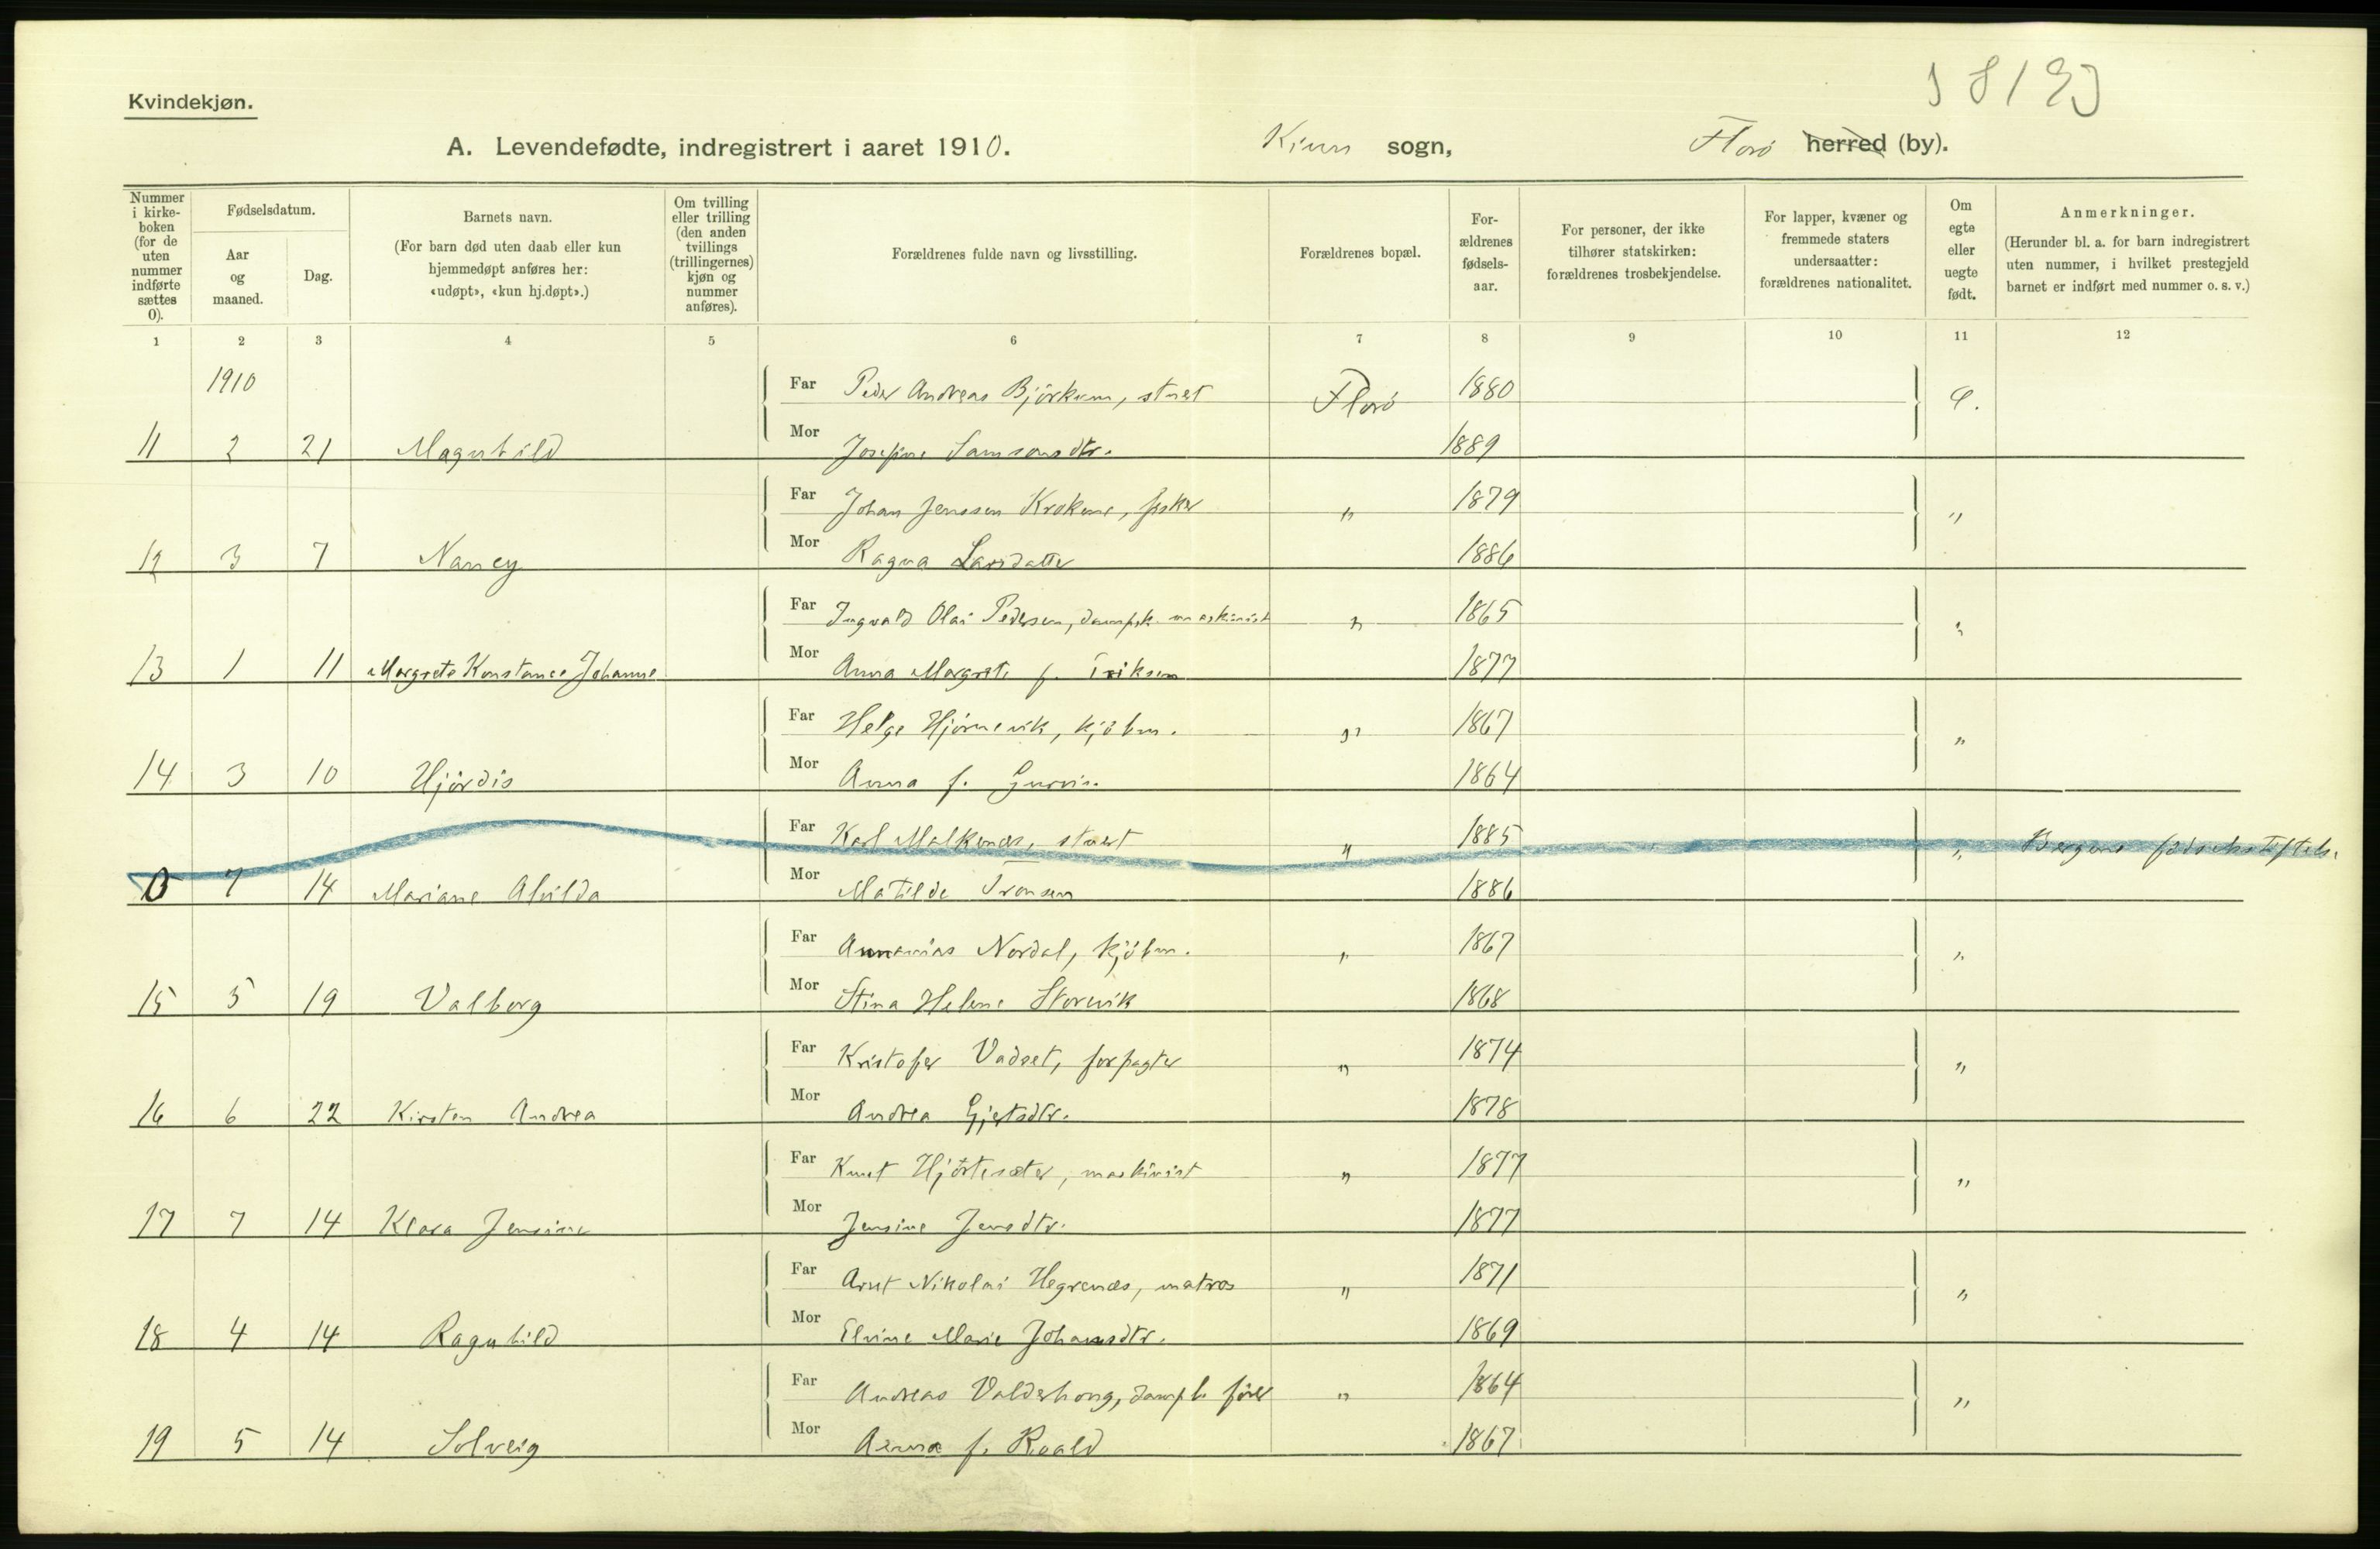 Kvindekjøn.
A. Levendefødte, indregistrert i aaret 1910. Kinn sogn, Florø herred (by).
Nummer i kirkeboken (for de uten nummer indførte sættes 0).
Fødselsdatum.
Aar og maaned.
Dag.
Barnets navn.
(For barn død uten daab eller kun hjemmedøpt anføres her: «udøpt», «kun hj.døpt».)
Om tvilling eller trilling (den anden tvillings (trillingernes) kjøn og nummer anføres).
Forældrenes fulde navn og livsstilling.
Forældrenes bopæl.
Forældrenes fødselsaar.
For personer, der ikke tilhører statskirken: forældrenes trosbekjendelse.
For lapper, kvæner og fremmede staters undersaatter: forældrenes nationalitet.
Om egte eller uegte født.
Anmerkninger.
(Herunder bl. a. for barn indregistrert uten nummer, i hvilket prestegjeld barnet er indført med nummer o. s. v.)
1 2 3 4 5 6 7 8 9 10 11 12
1910 Far Peder Andreas Björkum, stuert Florö 1880
11 2 21 Magnhild Mor Josefine Samsonsdtr. 1889
Far Johan Jenssen Krokene, fisker " 1879 "
12 3 7 Nancy Mor Ragna Larsdatter 1886
Far Ingvald Olai Pedersen, dampsk. maskinist " 1865 "
13 1 11 Margrete Konstance Johanne Mor Anna Margrete f. Eriksen 1877
Far Helge Hjörnevik, kjöbm. " 1867 "
14 3 10 Hjördis Mor Anna f. Gurvin. 1864
Far Karl Malkenæs, stuert " 1885 " Bergens födselsstiftels.
0 7 14 Mariane Alvilda Mor Matilde Tronsen 1886
Far Annanias Nordal, kjöbm. " 1867 "
15 5 19 Valborg Mor Stina Helene Storevik 1868
Far Kristofer Vadset, forpagter " 1874 "
16 6 22 Kirsten Andrea Mor Andrea Gjertsdtr. 1878
Far Knut Hjörtesæter, maskinist " 1877 "
17 7 14 Klara Jensine Mor Jensine Jensdtr. 1877
Far Arnt Nikolai Hegrenæs, matros " 1871 "
18 4 14 Ragnhild Mor Elvine Marie Johansdtr. 1869
Far Andreas Valderhaug, dampb. förer " 1864 "
19 5 14 Solveig Mor Anna f. Roald 1867